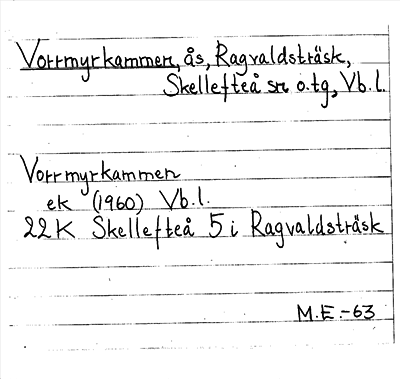 Vorrmyrkammen, ås, Ragvaldsträsk,
Skellefteå sn o.tg, Vb.l.
Vorrmyrkammen
ek (1960) Vb.l.
22K Skellefteå 5 i Ragvaldsträsk
M.E.-63